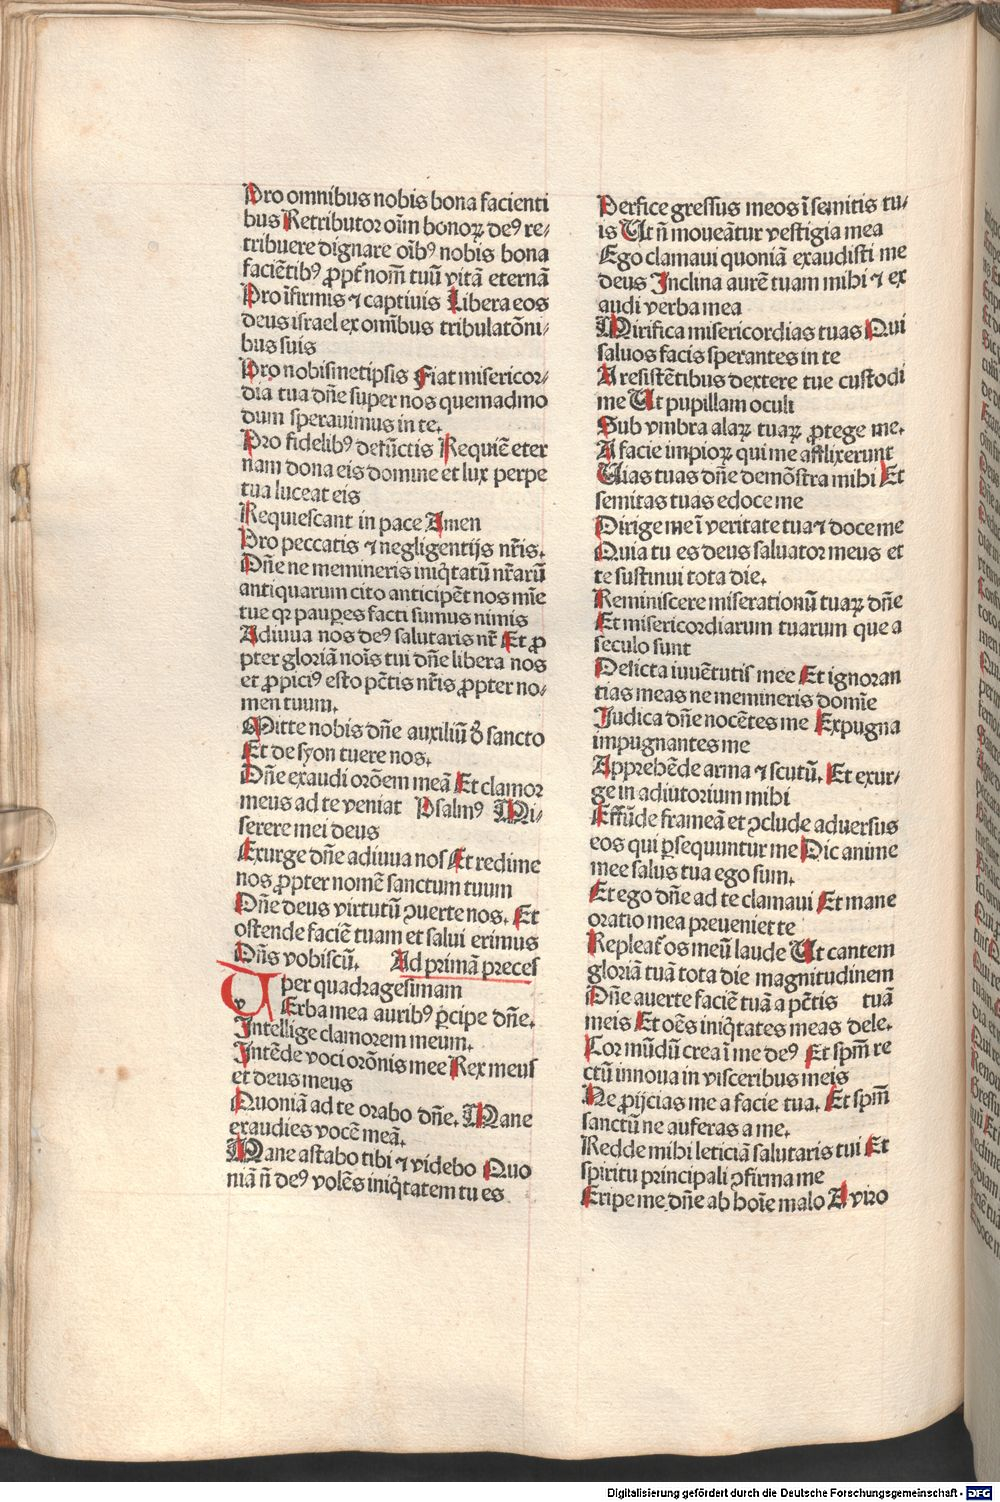 Pro omnibus nobis bona facienti
bus Retributor oīm honoꝝ deꝰ re-
tribuere dignare oībꝰ nobis bona
faciētibꝰ ꝓpt̄ nom̄ tuū vitā eternā
Pro īfirmis ⁊ captiuis Libera eos
deus israel ex omībus tribulatōni-
bus suis
Pro nobismetipsis Fiat misericor-
dia tua dn̄e super nos quemadmo
dum sperauimus in te.
Pro fidelibꝰ defūctis Requiē eter
nam dona eis domine et lux perpe
tua luceat eis
Requiescant in pace Amen
Pro peccatis ⁊ negligentijs nr̄is.
Dn̄e ne memineris iniq̄tatū nr̄arū
antiquarum cito anticipēt nos mīe
tue qꝛ pauꝑes facti sumus nimis
Adiuua nos deꝰ salutaris nr̄ Et ꝓ
pter gloriā noīs tui dn̄e libera nos
et ꝓpiciꝰ esto pc̄tis nr̄is ꝓpter no-
men tuum.
Mitte nobis dn̄e auxiliū d̄ sancto
Et de syon tuere nos.
Dn̄e exaudi orōem meā Et clamor
meus ad te veniat Psalmꝰ Mi-
serere mei deus
Exurge dn̄e adiuua nos Et redime
nos ꝓpter nomē sanctum tuum
Dn̄e deus virtutū ꝯuerte nos. Et
ostende faciē tuam et salui erimus
Dn̄s vobiscū. Ad primā preces
per quadragesimam
VErba mea auribꝰ ꝑcipe dn̄e.
Intellige clamorem meum.
Intēde voci orōnis mee Rex meus
et deus meus
Quoniā ad te orabo dn̄e. Mane
exaudies vocē meā.
Mane astabo tibi ⁊ videbo Quo
niā n̄ deꝰ volēs iniq̄tatem tu es
Perfice gressus meos ī semitis tu-
is Ut n̄ moueātur vestigia mea
Ego clamaui quoniā exaudisti me
deus Inclina aurē tuam mihi ⁊ ex
audi verba mea
Mirifica misericordias tuas Qui
saluos facis sperantes in te
A resistētibus dextere tue custodi
me Ut pupillam oculi
Sub vmbra alaꝝ tuaꝝ ꝓtege me.
A facie impioꝝ qui me afflixerunt
Uias tuas dn̄e demōstra mihi Et
semitas tuas edoce me
Dirige me ī veritate tua ⁊ doce me
Quia tu es deus saluator meus et
te sustinui tota die.
Reminiscere miserationū tuaꝝ dn̄e
Et misericordiarum tuarum que a
seculo sunt
Delicta iuuētutis mee Et ignoran
tias meas ne memineris domīe
Judica dn̄e nocētes me Expugna
impugnantes me
Apprehēde arma ⁊ scutū. Et exur-
ge in adiutorium mihi
Effūde frameā et ꝯclude aduersus
eos qui ꝑsequuntur me Dic anime
mee salus tua ego sum.
Et ego dn̄e ad te clamaui Et mane
oratio mea preueniet te
Repleat̄ os meū laude Ut cantem
gloriā tuā tota die magnitudinem
Dn̄e auerte faciē tuā a pc̄tis tuā
meis Et oēs iniq̄tates meas dele.
Cor mūdū crea ī me deꝰ Et spm̄ re
ctū innoua in visceribus meis
Ne ꝓijcias me a facie tua. Et spm̄
sanctū ne auferas a me.
Redde mihi leticiā salutaris tui Et
spiritu principali ꝯfirma me
Eripe me dn̄e ab hoīe malo A viro
Digitalisierung gefördert durch die Deutsche Forschungsgemeinschaft - DFG